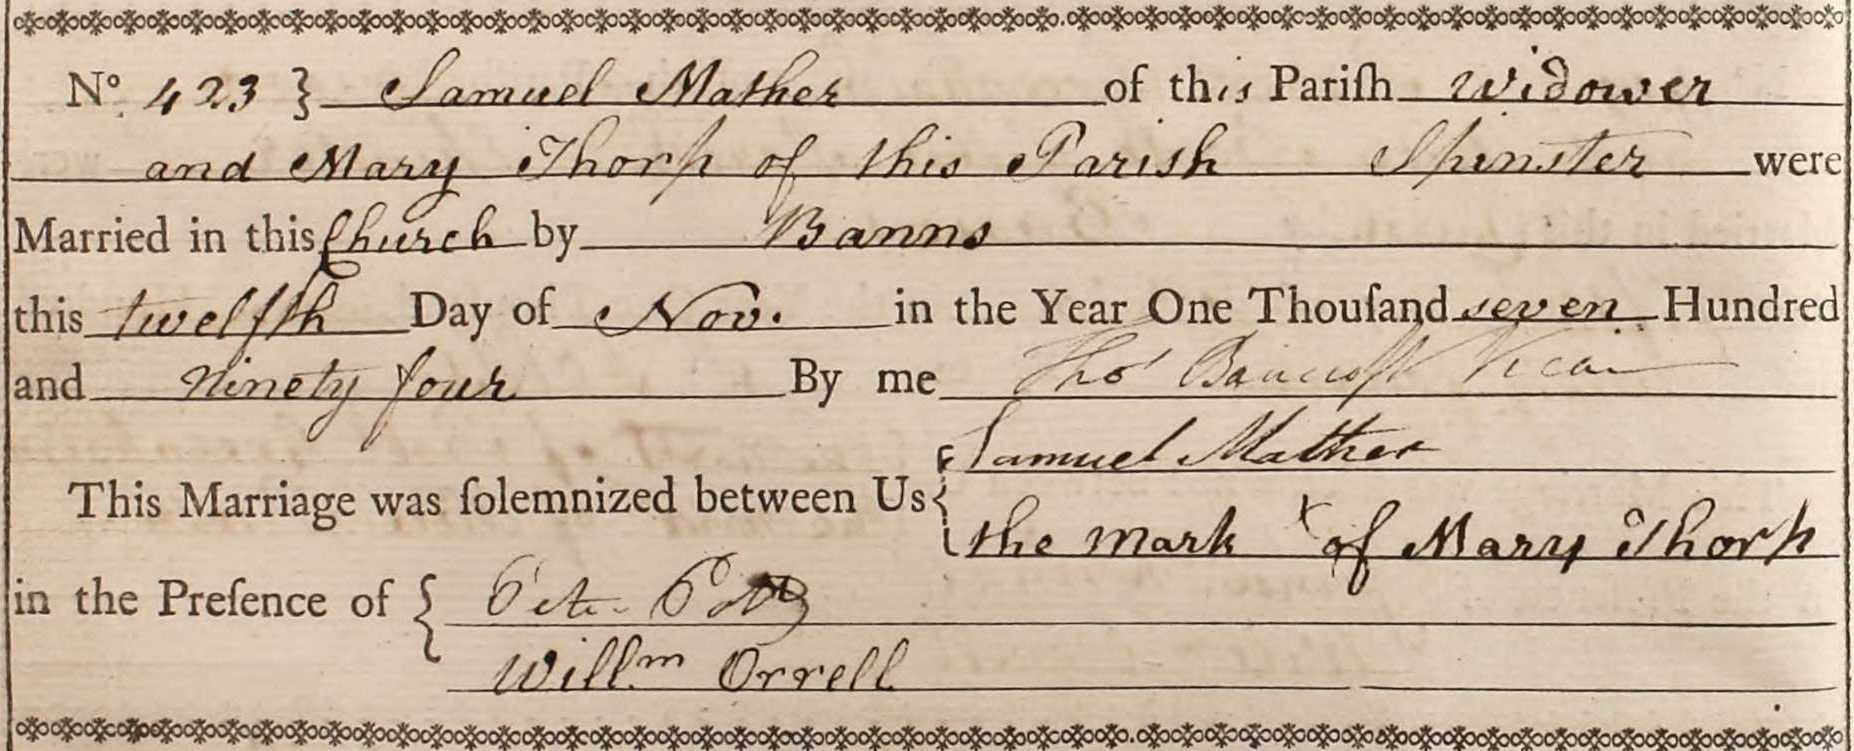 Nº 423 } Samuel Mather of this Pariſh Widower
and Mary Thorp of this Parish Spinster were
Married in this Church by Banns
this twelfth Day of Nov. in the Year One Thouſand seven Hundred
and Ninety four By me Thoˢ Bancroft Vicar
This Marriage was ſolemnized between Us { Samuel Mather
the mark x of Mary Thorp
in the Preſence of { Peter
Willᵐ Orrell